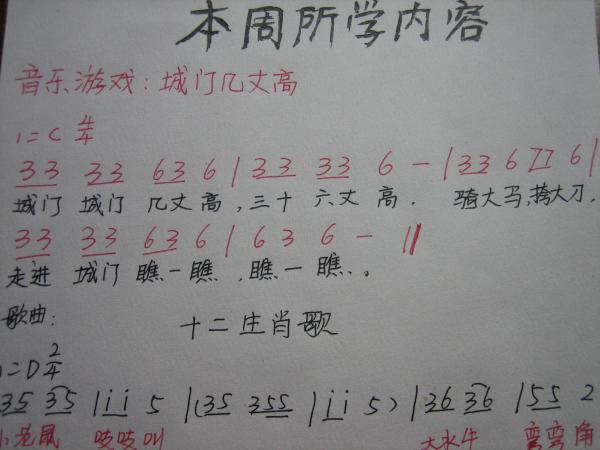 本周所学内容
音乐游戏：城门几丈高
1=C 4/4
33 33 63 6 | 33 33 6 - | 33 6 77 6 |
城门 城门 几丈高，三十 六丈 高． 骑大马，挎大刀，
33 33 63 6 | 6 3 6 - ||
走进 城门 瞧一瞧，瞧一瞧、。
歌曲： 十二生肖歌
1=D 2/4
35 35 | i i 5 | (35 355 | i i 5) | 36 36 | 55 2
小老鼠 吱吱叫 大水牛 弯弯角